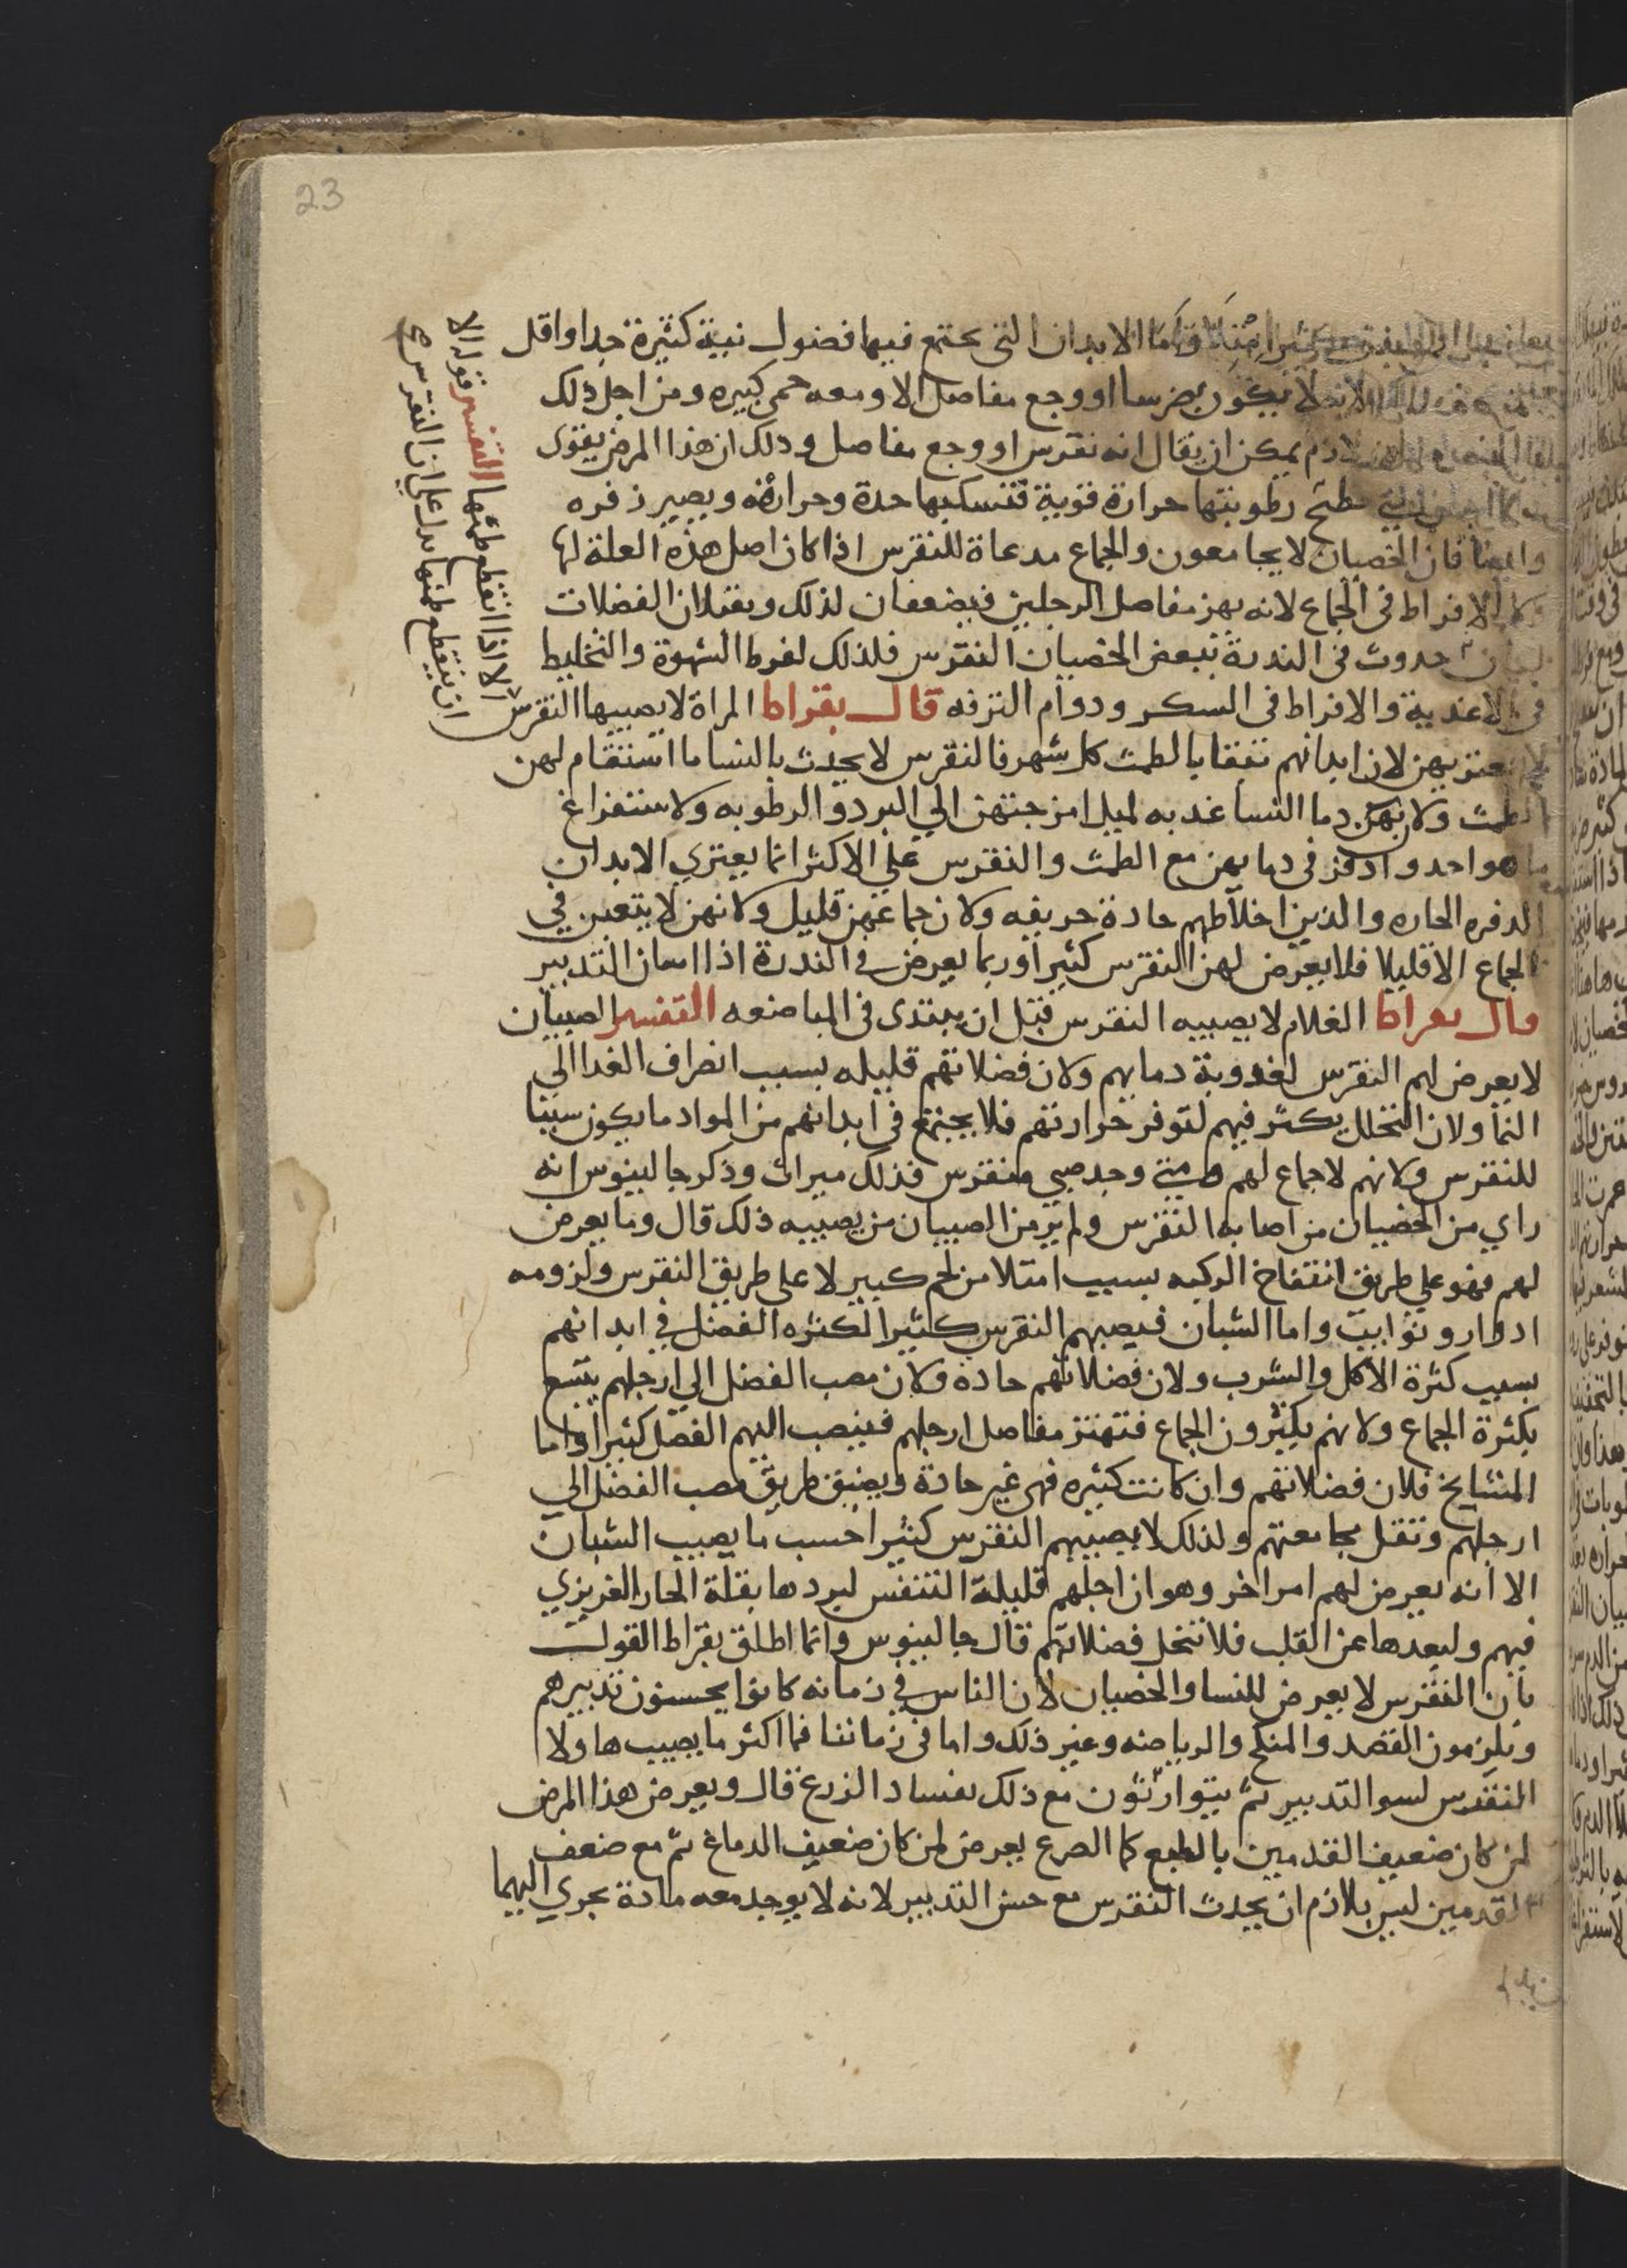 23
امتلا واما الابدان التي يجتمع فيها فضول نية كثيرة جدا واقل
لا يكون بضرسا او وجع مفاصل الا ومعه حمى كبيره ومن اجل ذلك
يمكن ان يقال انه نقرس او وجع مفاصل وذلك ان هذا المرض يقوى
رطوبتها حرارة قوية فتسكبها حدة وحرافة ويصير ذفره
وايضا فان الخصيان لا يجامعون والجماع مدعاة للنقرس اذا كان اصل هذه العلة لها
الافراط في الجماع لانه يهز مفاصل الرجلين فيضعفان لذلك ويقبلان الفضلات
حدوث في الندرة ببعض الخصيان النقرس فلذلك لفرط الشهوة والتخليط
في الاغدية والافراط في السكر ودوام الترفه قال بقراط المراة لا يصيبها النقرس
الا اذا انقطع طمثها التفسير قوله الا
ان ينقطع طمثها يدل على ان النقرس
يعتريهن لان ابدانهم تنقا بالطمث كل شهر فالنقرس لا يحدث بالنسا ما استقام لهن
الطمث ولان دما النسا عذبه لميل امزجتهن الي البرد والرطوبه ولاستفراغ
ما هو احد واذفر في دمايهن مع الطمث والنقرس علي الاكثر انما يعتري الابدان
الدفره الحاره والذين اخلاطهم حادة حريفه ولان جماعهن قليل ولانهن لا يتعبن في
الجماع الا قليلا فلا يعرض لهن النقرس كثيرا وربما يعرض في الندرة اذا اسان التدبير
قال بقراط الغلام لا يصيبه النقرس قبل ان يبتدى في المباضعه التفسير الصبيان
لا يعرض لهم النقرس لعذوبة دمايهم ولان فضلاتهم قليله بسبب انصراف الغدا الي
النما ولان التحلل يكثر فيهم لتوفر حرارتهم فلا يجتمع في ابدانهم من المواد ما يكون سببا
للنقرس ولانهم لا جماع لهم ومتى وجد صبي منقرس فذلك ميراث وذكر جالينوس انه
راي من الخصيان من اصابه النقرس ولم ير من الصبيان من يصيبه ذلك قال وما يعرض
لهم فهو علي طريق انتفاخ الركبه بسبب امتلا من لحم كبير لا على طريق النقرس ولزومه
ادوار ونوايب واما الشبان فيصيبهم النقرس كثيرا لكثره الفضل في ابدانهم
بسبب كثرة الاكل والشرب ولان فضلاتهم حادة ولان مصب الفضل الي ارجلهم يتسع
بكثرة الجماع ولانهم يكثرون الجماع فتهتز مفاصل ارجلهم فينصب اليهم الفضل كثيرا واما
المشايخ فلان فضلاتهم وان كانت كثيره فهي غير حادة ويضيق طريق مصب الفضل الي
ارجلهم وتقل مجامعتهم ولذلك لا يصيبهم النقرس كثيرا حسب ما يصيب الشبان
الا انه يعرض لهم امر اخر وهو ان ارجلهم قليلة التنفس لبردها بقلة الحار الغريزي
فيهم ولبعدها عن القلب فلا تنحل فضلاتهم قال جالينوس وانما اطلق بقراط القول
بان النقرس لا يعرض للنسا والخصيان لان الناس في زمانه كانوا يحسنون تدبيرهم
ويلزمون الفصد والمنكح والرياضه وغير ذلك واما في زماننا فما اكثر ما يصيب هاولا
النقرس لسو التدبير ثم يتوارثون مع ذلك بفساد الزرع قال ويعرض هذا المرض
لمن كان ضعيف القدمين بالطبع كما الصرع يعرض لمن كان ضعيف الدماغ ثم مع ضعف
القدمين ليس بلازم ان يحدث النقرس مع حسن التدبير لانه لا يوجد معه مادة تجري اليهما